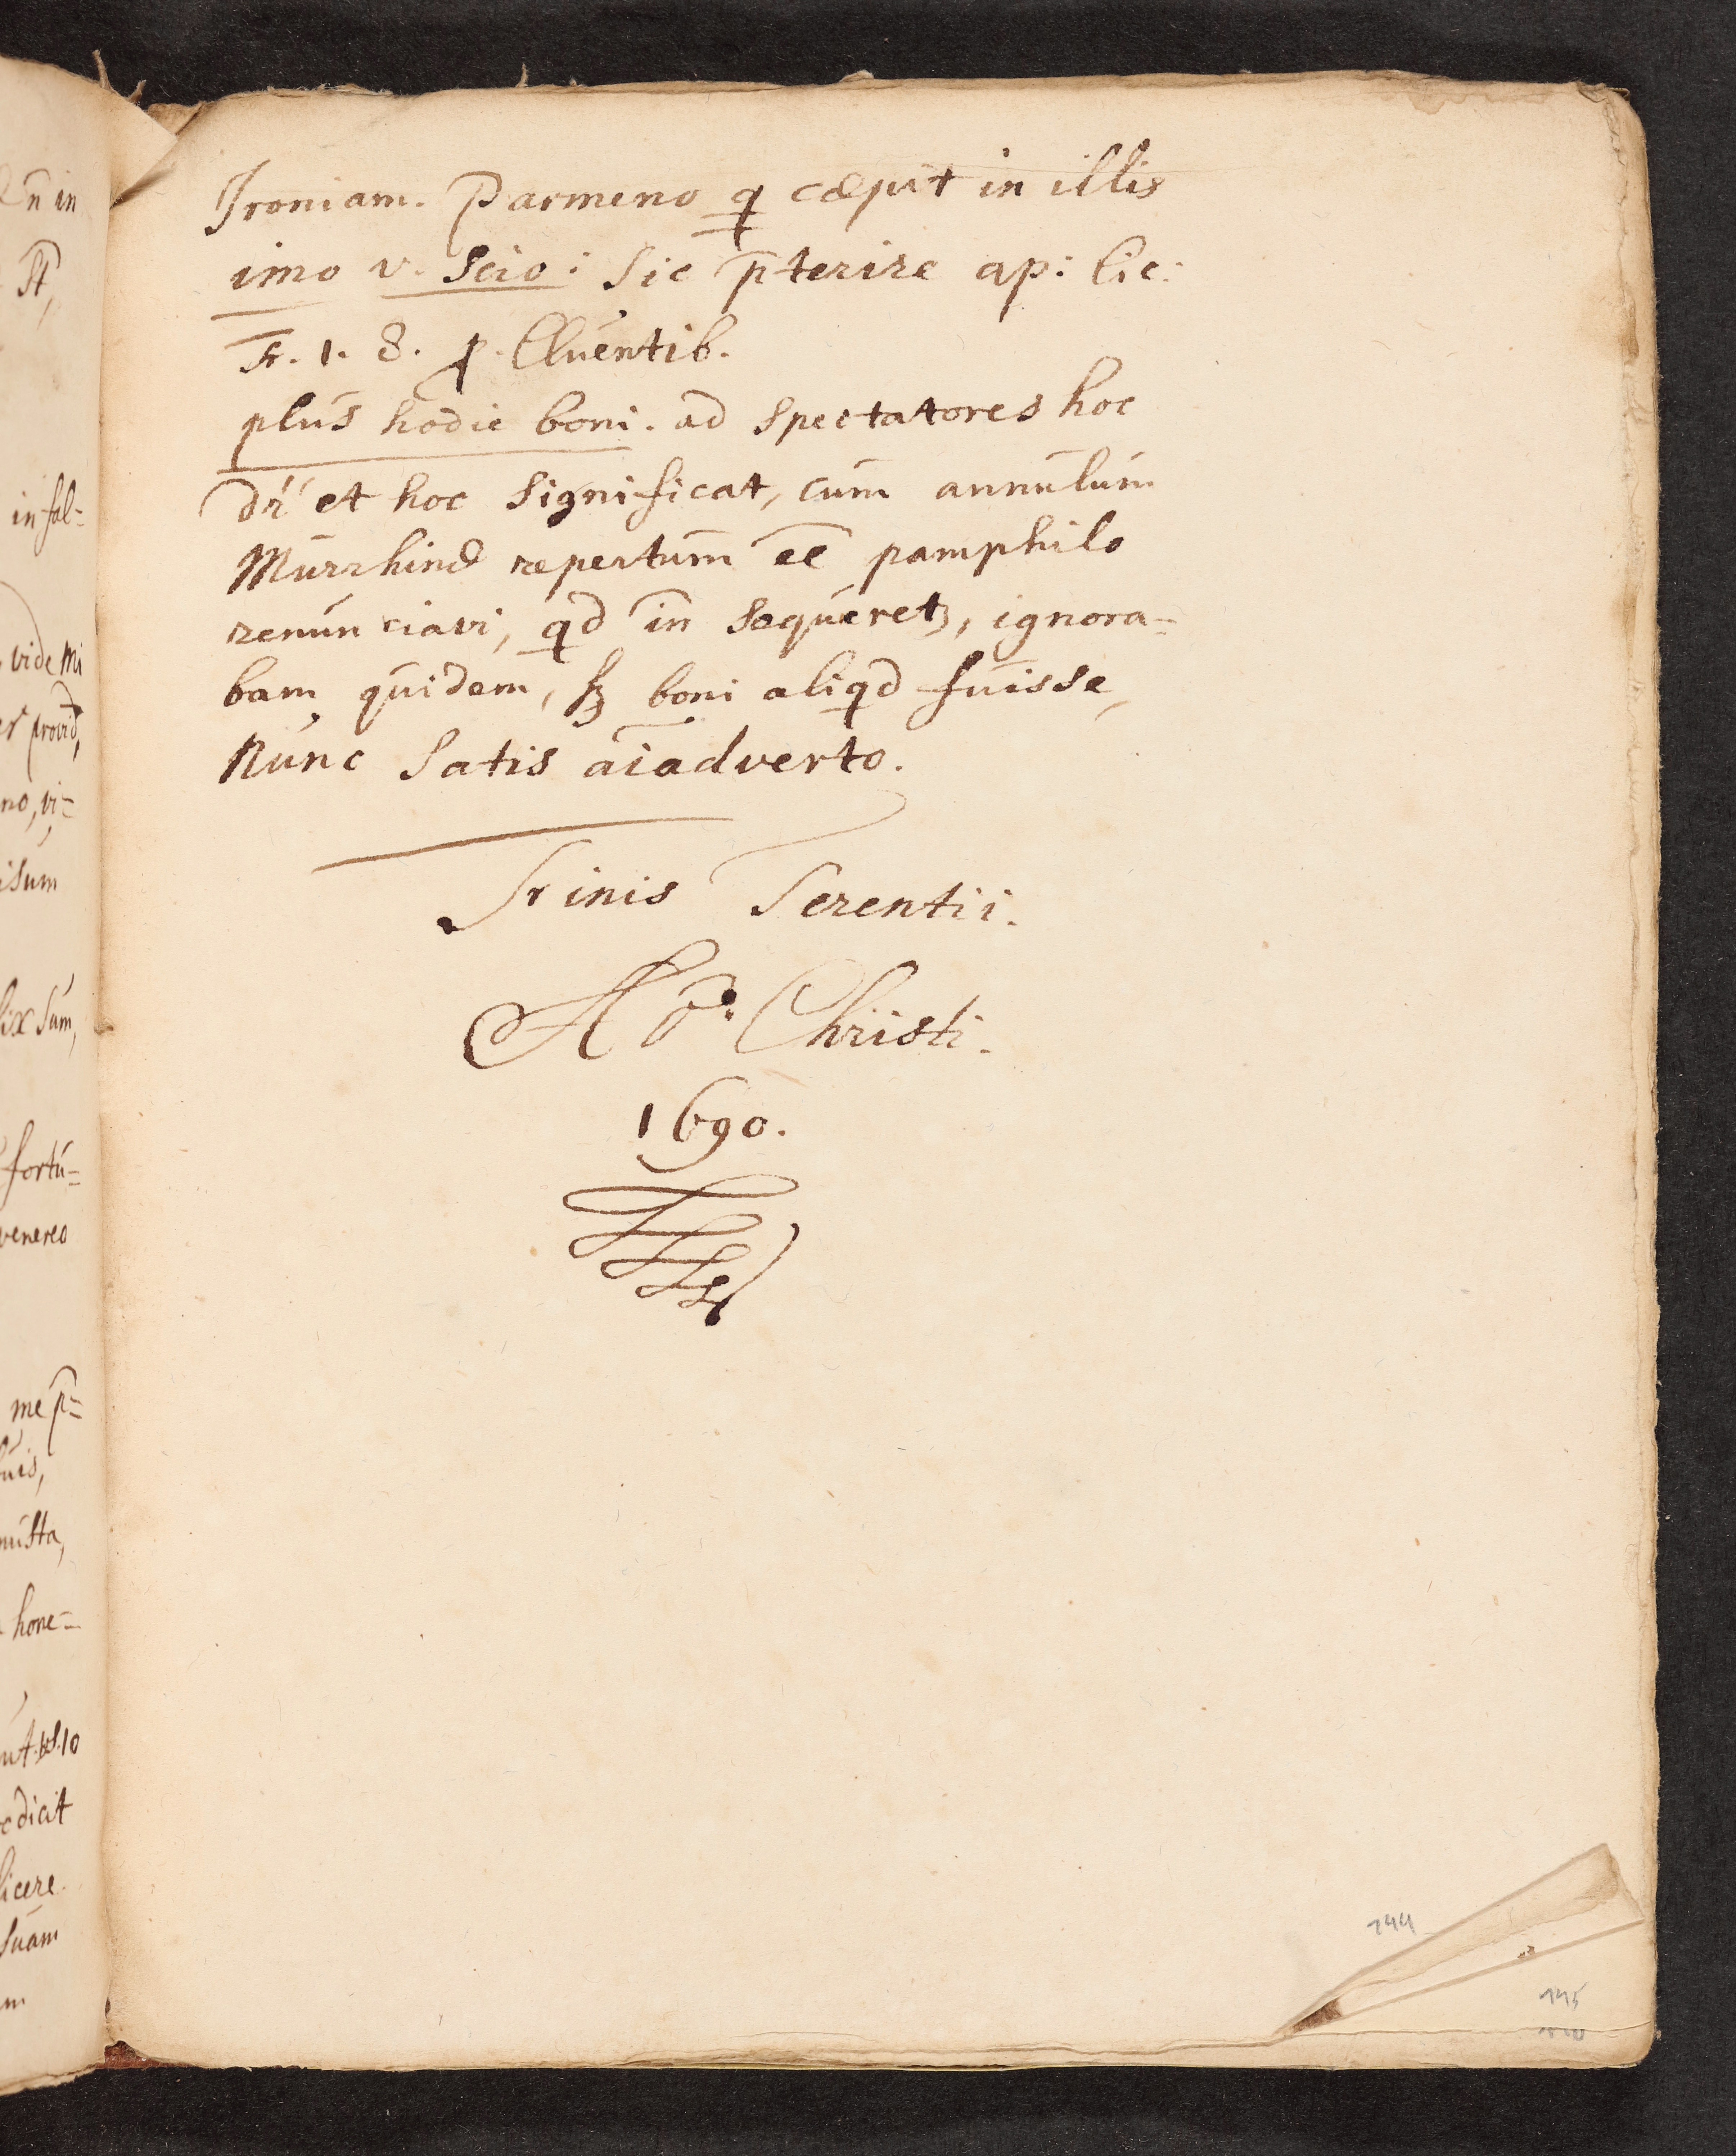 Ironiam. Parmeno q cœpit in illis
imo v. Scio: sic p̄terire ap: Cic:
Fr. 1. 8. p. Cluentib.
plus hodie boni. ad Spectatores hoc
dr̄ et hoc significat, cum annulum
Murrhinæ repertum ee̅ pamphilo
renunciavi, qd in sequeretꝫ, ignora=
bam quidem, sꝫ boni aliqd fuisse,
Nunc Satis aīadverto.
Finis Terentii.
Aō. Christi.
1690.
n̄ in
st,
in fal=
vide mi
er provid,
no, vi=
isum
lix sum,
fortu=
venereo
me p̄=
uis,
nusta,
hone=
ut. vs. 10
dicit
licere.
suam
m
144
145